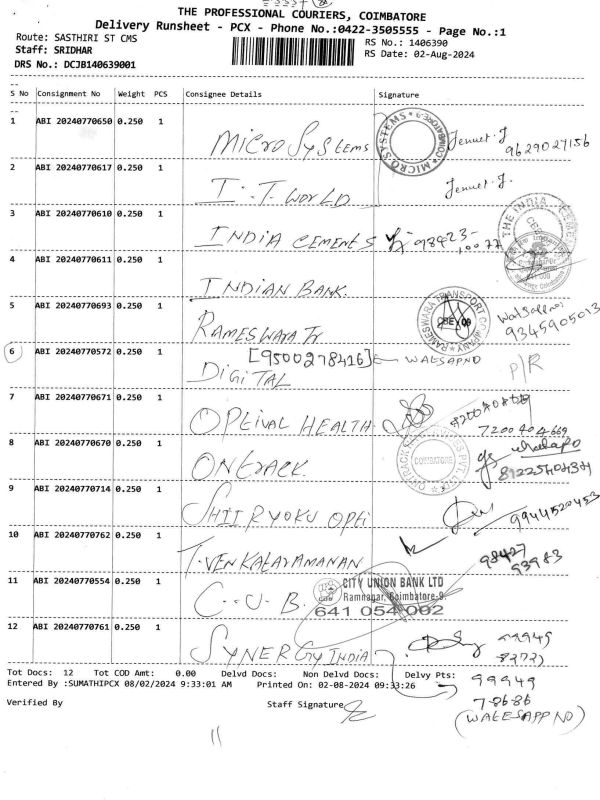 THE PROFESSIONAL COURIERS, COIMBATORE
Delivery Runsheet - PCX - Phone No.:0422-3505555 - Page No.:1
Route: SASTHIRI ST CMS
RS No.: 1406390
Staff: SRIDHAR
RS Date: 02-Aug-2024
DRS No.: DCJB140639001
S No Consignment No Weight PCS Consignee Details Signature
1 ABI 20240770650 0.250 1 Micro Systems MICRO SYSTEMS COIMBATORE-9 Jenuet.J
9629027156
2 ABI 20240770617 0.250 1 I.T. WORLD Jenuet.J.
3 ABI 20240770610 0.250 1 INDIA CEMENTS 98423-
10077
THE INDIA CEMENTS
4 ABI 20240770611 0.250 1 INDIAN BANK.
5 ABI 20240770693 0.250 1 RAMESWARA Tr RAMESWARA TRANSPORT COMPANY
9345905013
6 ABI 20240770572 0.250 1 [9500278416] WATSAPNO
DIGITAL P/R
7 ABI 20240770671 0.250 1 OPTIVAL HEALTH
7200404669
8 ABI 20240770670 0.250 1 ONTRACK. COIMBATORE whatapp
8122540434
9 ABI 20240770714 0.250 1 SHIIRYOKU OPti
9944520453
10 ABI 20240770762 0.250 1 T.VENKATARAMANAN 98427
93983
11 ABI 20240770554 0.250 1 C.U.B. CITY UNION BANK LTD
Ramnagar, Coimbatore-9.
641 054 002
12 ABI 20240770761 0.250 1 SYNERGY INDIA
Tot Docs: 12 Tot COD Amt: 0.00 Delvd Docs: Non Delvd Docs: Delvy Pts:
Entered By :SUMATHIPCX 08/02/2024 9:33:01 AM Printed On: 02-08-2024 09:33:26
99949
78686
(WATESAPP NO)
Verified By Staff Signature